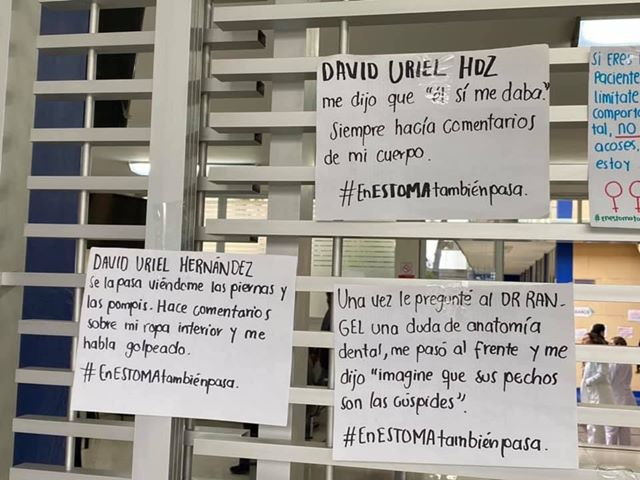 DAVID URIEL HDZ
me dijo que "él sí me daba."
Siempre hacía comentarios
de mi cuerpo.
#EnESTOMAtambiénpasa.
SI ERES
Paciente
limítate
comporta
tal, NO
acoses,
estoy
#enestoma
DAVID URIEL HERNÁNDEZ
se la pasa viéndome las piernas y
las pompis. Hace comentarios
sobre mi ropa interior y me
habla golpeado.
#EnESTOMAtambiénpasa.
Una vez le pregunté al DR RAN-
GEL una duda de anatomía
dental, me pasó al frente y me
dijo "imagine que sus pechos
son las cúspides".
#EnESTOMAtambiénpasa.